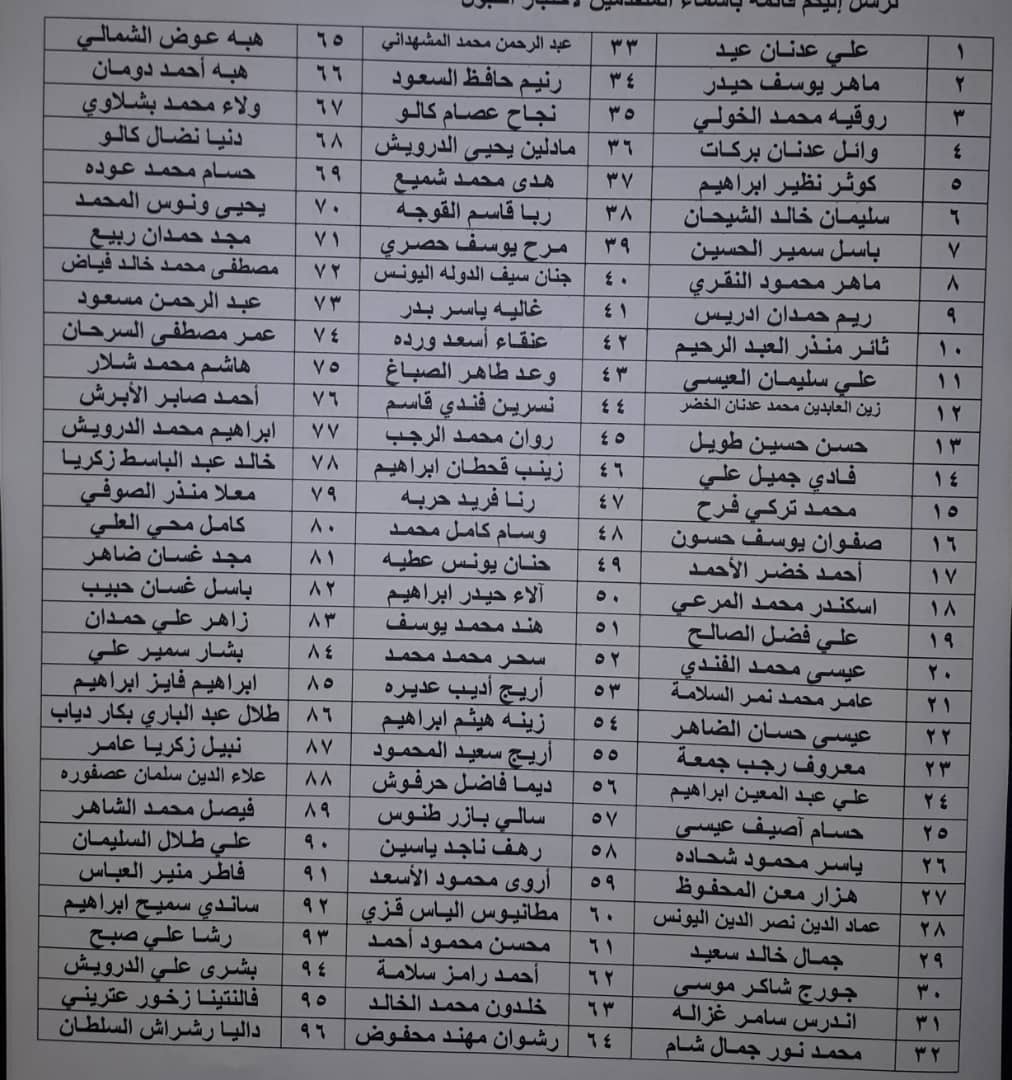 نرسل إليكم قائمة بأسماء المتقدمين لاختبار القبول
١ علي عدنان عيد
٢ ماهر يوسف حيدر
٣ روقيه محمد الخولي
٤ وائل عدنان بركات
٥ كوثر نظير ابراهيم
٦ سليمان خالد الشيحان
٧ باسل سمير الحسين
٨ ماهر محمود النقري
٩ ريم حمدان ادريس
١٠ ثائر منذر العبد الرحيم
١١ علي سليمان العيسى
١٢ زين العابدين محمد عدنان الخضر
١٣ حسن حسين طويل
١٤ فادي جميل علي
١٥ محمد تركي فرح
١٦ صفوان يوسف حسون
١٧ أحمد خضر الأحمد
١٨ اسكندر محمد المرعي
١٩ علي فضل الصالح
٢٠ عيسى محمد الفندي
٢١ عامر محمد نمر السلامة
٢٢ عيسى حسان الضاهر
٢٣ معروف رجب جمعة
٢٤ علي عبد المعين ابراهيم
٢٥ حسام آصيف عيسى
٢٦ ياسر محمود شحاده
٢٧ هزار معن المحفوظ
٢٨ عماد الدين نصر الدين اليونس
٢٩ جمال خالد سعيد
٣٠ جورج شاكر موسى
٣١ اندرس سامر غزاله
٣٢ محمد نور جمال شام
٣٣ عبد الرحمن محمد المشهداني
٣٤ رنيم حافظ السعود
٣٥ نجاح عصام كالو
٣٦ مادلين يحيى الدرويش
٣٧ هدى محمد شميع
٣٨ ربا قاسم القوجه
٣٩ مرح يوسف حصري
٤٠ جنان سيف الدوله اليونس
٤١ غاليه ياسر بدر
٤٢ عنقاء أسعد ورده
٤٣ وعد طاهر الصباغ
٤٤ نسرين فندي قاسم
٤٥ روان محمد الرجب
٤٦ زينب قحطان ابراهيم
٤٧ رنا فريد حربه
٤٨ وسام كامل محمد
٤٩ حنان يونس عطيه
٥٠ آلاء حيدر ابراهيم
٥١ هند محمد يوسف
٥٢ سحر محمد محمد
٥٣ أريج أديب عديره
٥٤ زينه هيثم ابراهيم
٥٥ أريج سعيد المحمود
٥٦ ديما فاضل حرفوش
٥٧ سالي بازر طنوس
٥٨ رهف ناجد ياسين
٥٩ أروى محمود الأسعد
٦٠ مطانيوس الياس قزي
٦١ محسن محمود أحمد
٦٢ أحمد رامز سلامة
٦٣ خلدون محمد الخالد
٦٤ رشوان مهند محفوض
٦٥ هبه عوض الشمالي
٦٦ هبه أحمد دومان
٦٧ ولاء محمد بشلاوي
٦٨ دنيا نضال كالو
٦٩ حسام محمد عوده
٧٠ يحيى ونوس المحمد
٧١ مجد حمدان ربيع
٧٢ مصطفى محمد خالد فياض
٧٣ عبد الرحمن مسعود
٧٤ عمر مصطفى السرحان
٧٥ هاشم محمد شلار
٧٦ أحمد صابر الأبرش
٧٧ ابراهيم محمد الدرويش
٧٨ خالد عبد الباسط زكريا
٧٩ معلا منذر الصوفي
٨٠ كامل محي العلي
٨١ مجد غسان ضاهر
٨٢ باسل غسان حبيب
٨٣ زاهر علي حمدان
٨٤ بشار سمير علي
٨٥ ابراهيم فايز ابراهيم
٨٦ طلال عبد الباري بكار دياب
٨٧ نبيل زكريا عامر
٨٨ علاء الدين سلمان عصفوره
٨٩ فيصل محمد الشاهر
٩٠ علي طلال السليمان
٩١ فاطر منير العباس
٩٢ ساندي سميح ابراهيم
٩٣ رشا علي صبح
٩٤ بشرى علي الدرويش
٩٥ فالنتينا زخور عتريني
٩٦ داليا رشراش السلطان